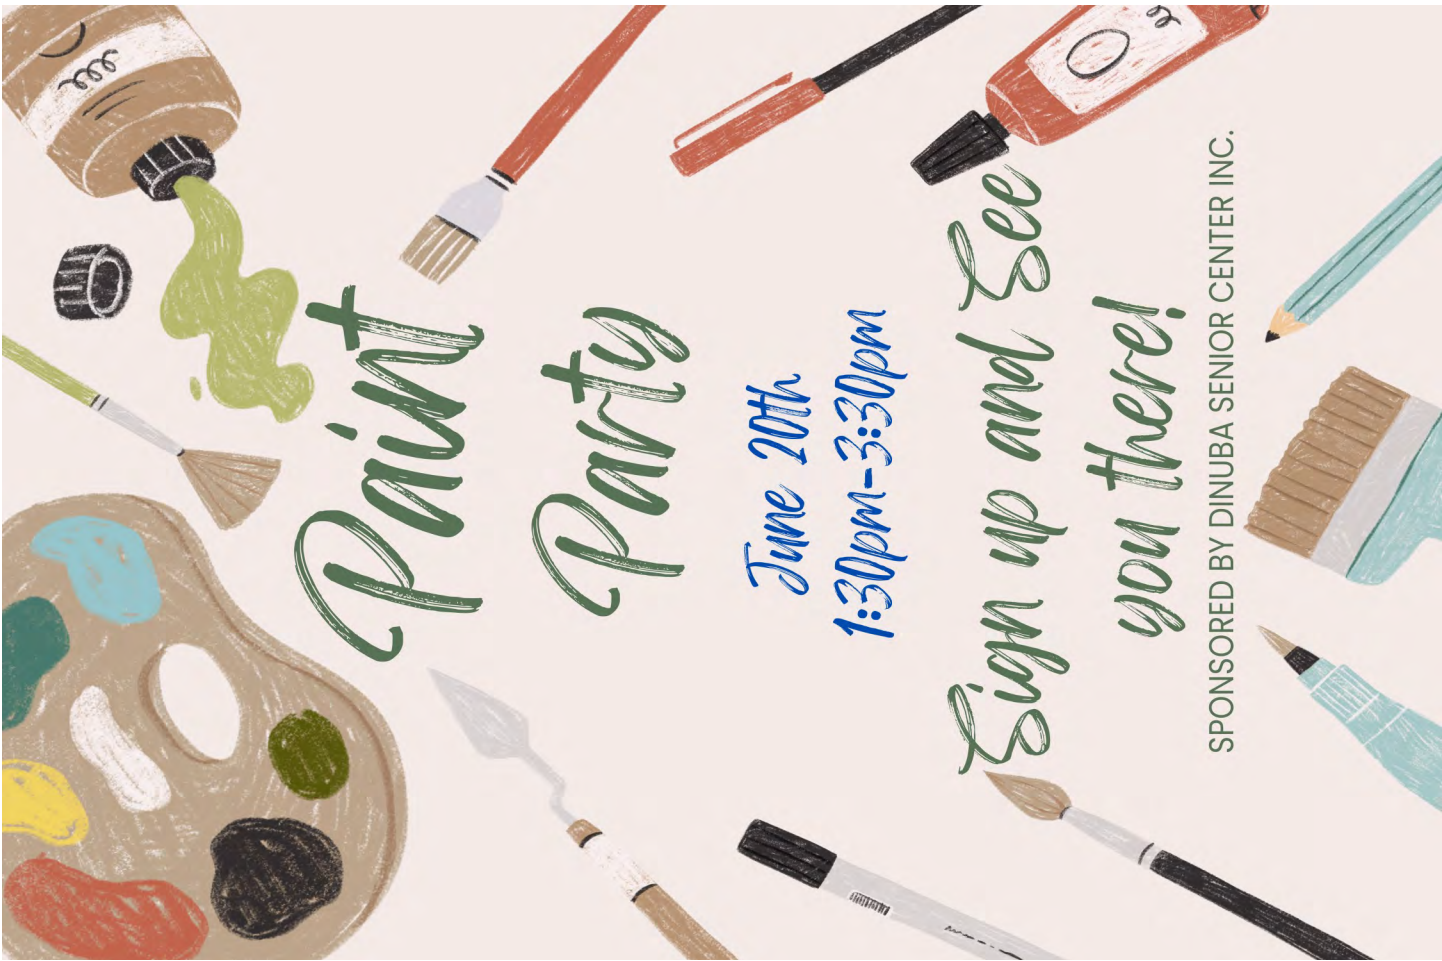 Paint
Party
June 20th
1:30pm-3:30pm
Sign up and See
you there!
SPONSORED BY DINUBA SENIOR CENTER INC.